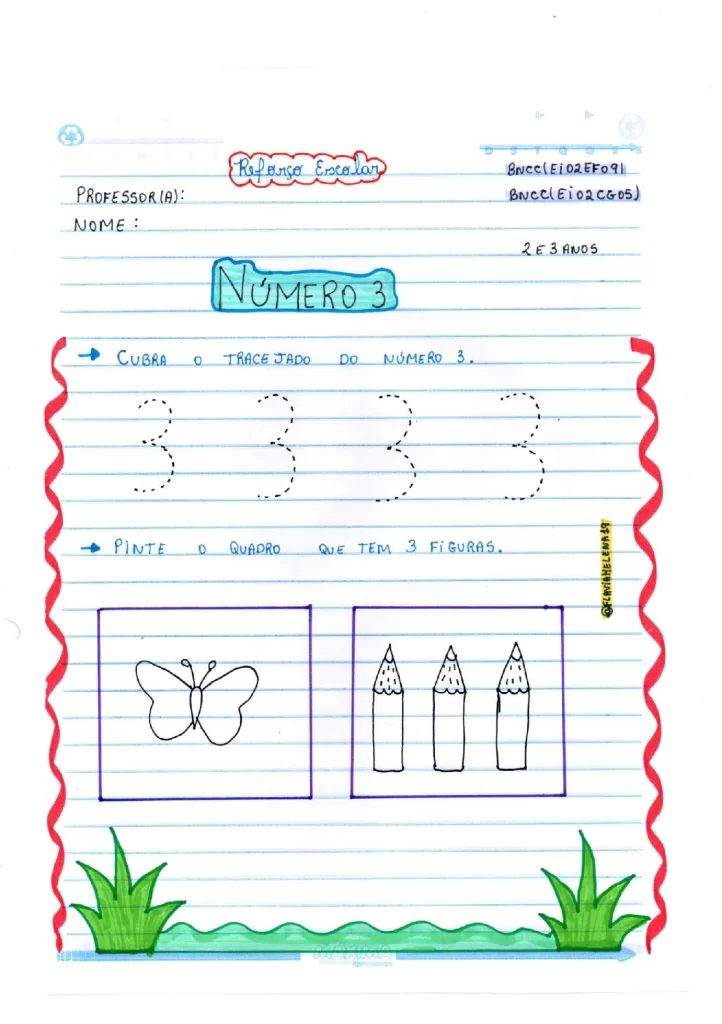 D S T Q Q S S
Reforço Escolar
BNCC(Ei02EF09)
PROFESSOR(A):
BNCC(Ei02CG05)
NOME :
2 E 3 ANOS
NÚMERO 3
→ CUBRA O TRACEJADO DO NÚMERO 3.
3 3 3 3
→ PINTE O QUADRO QUE TEM 3 FIGURAS.
@FLAVIAHELENA19